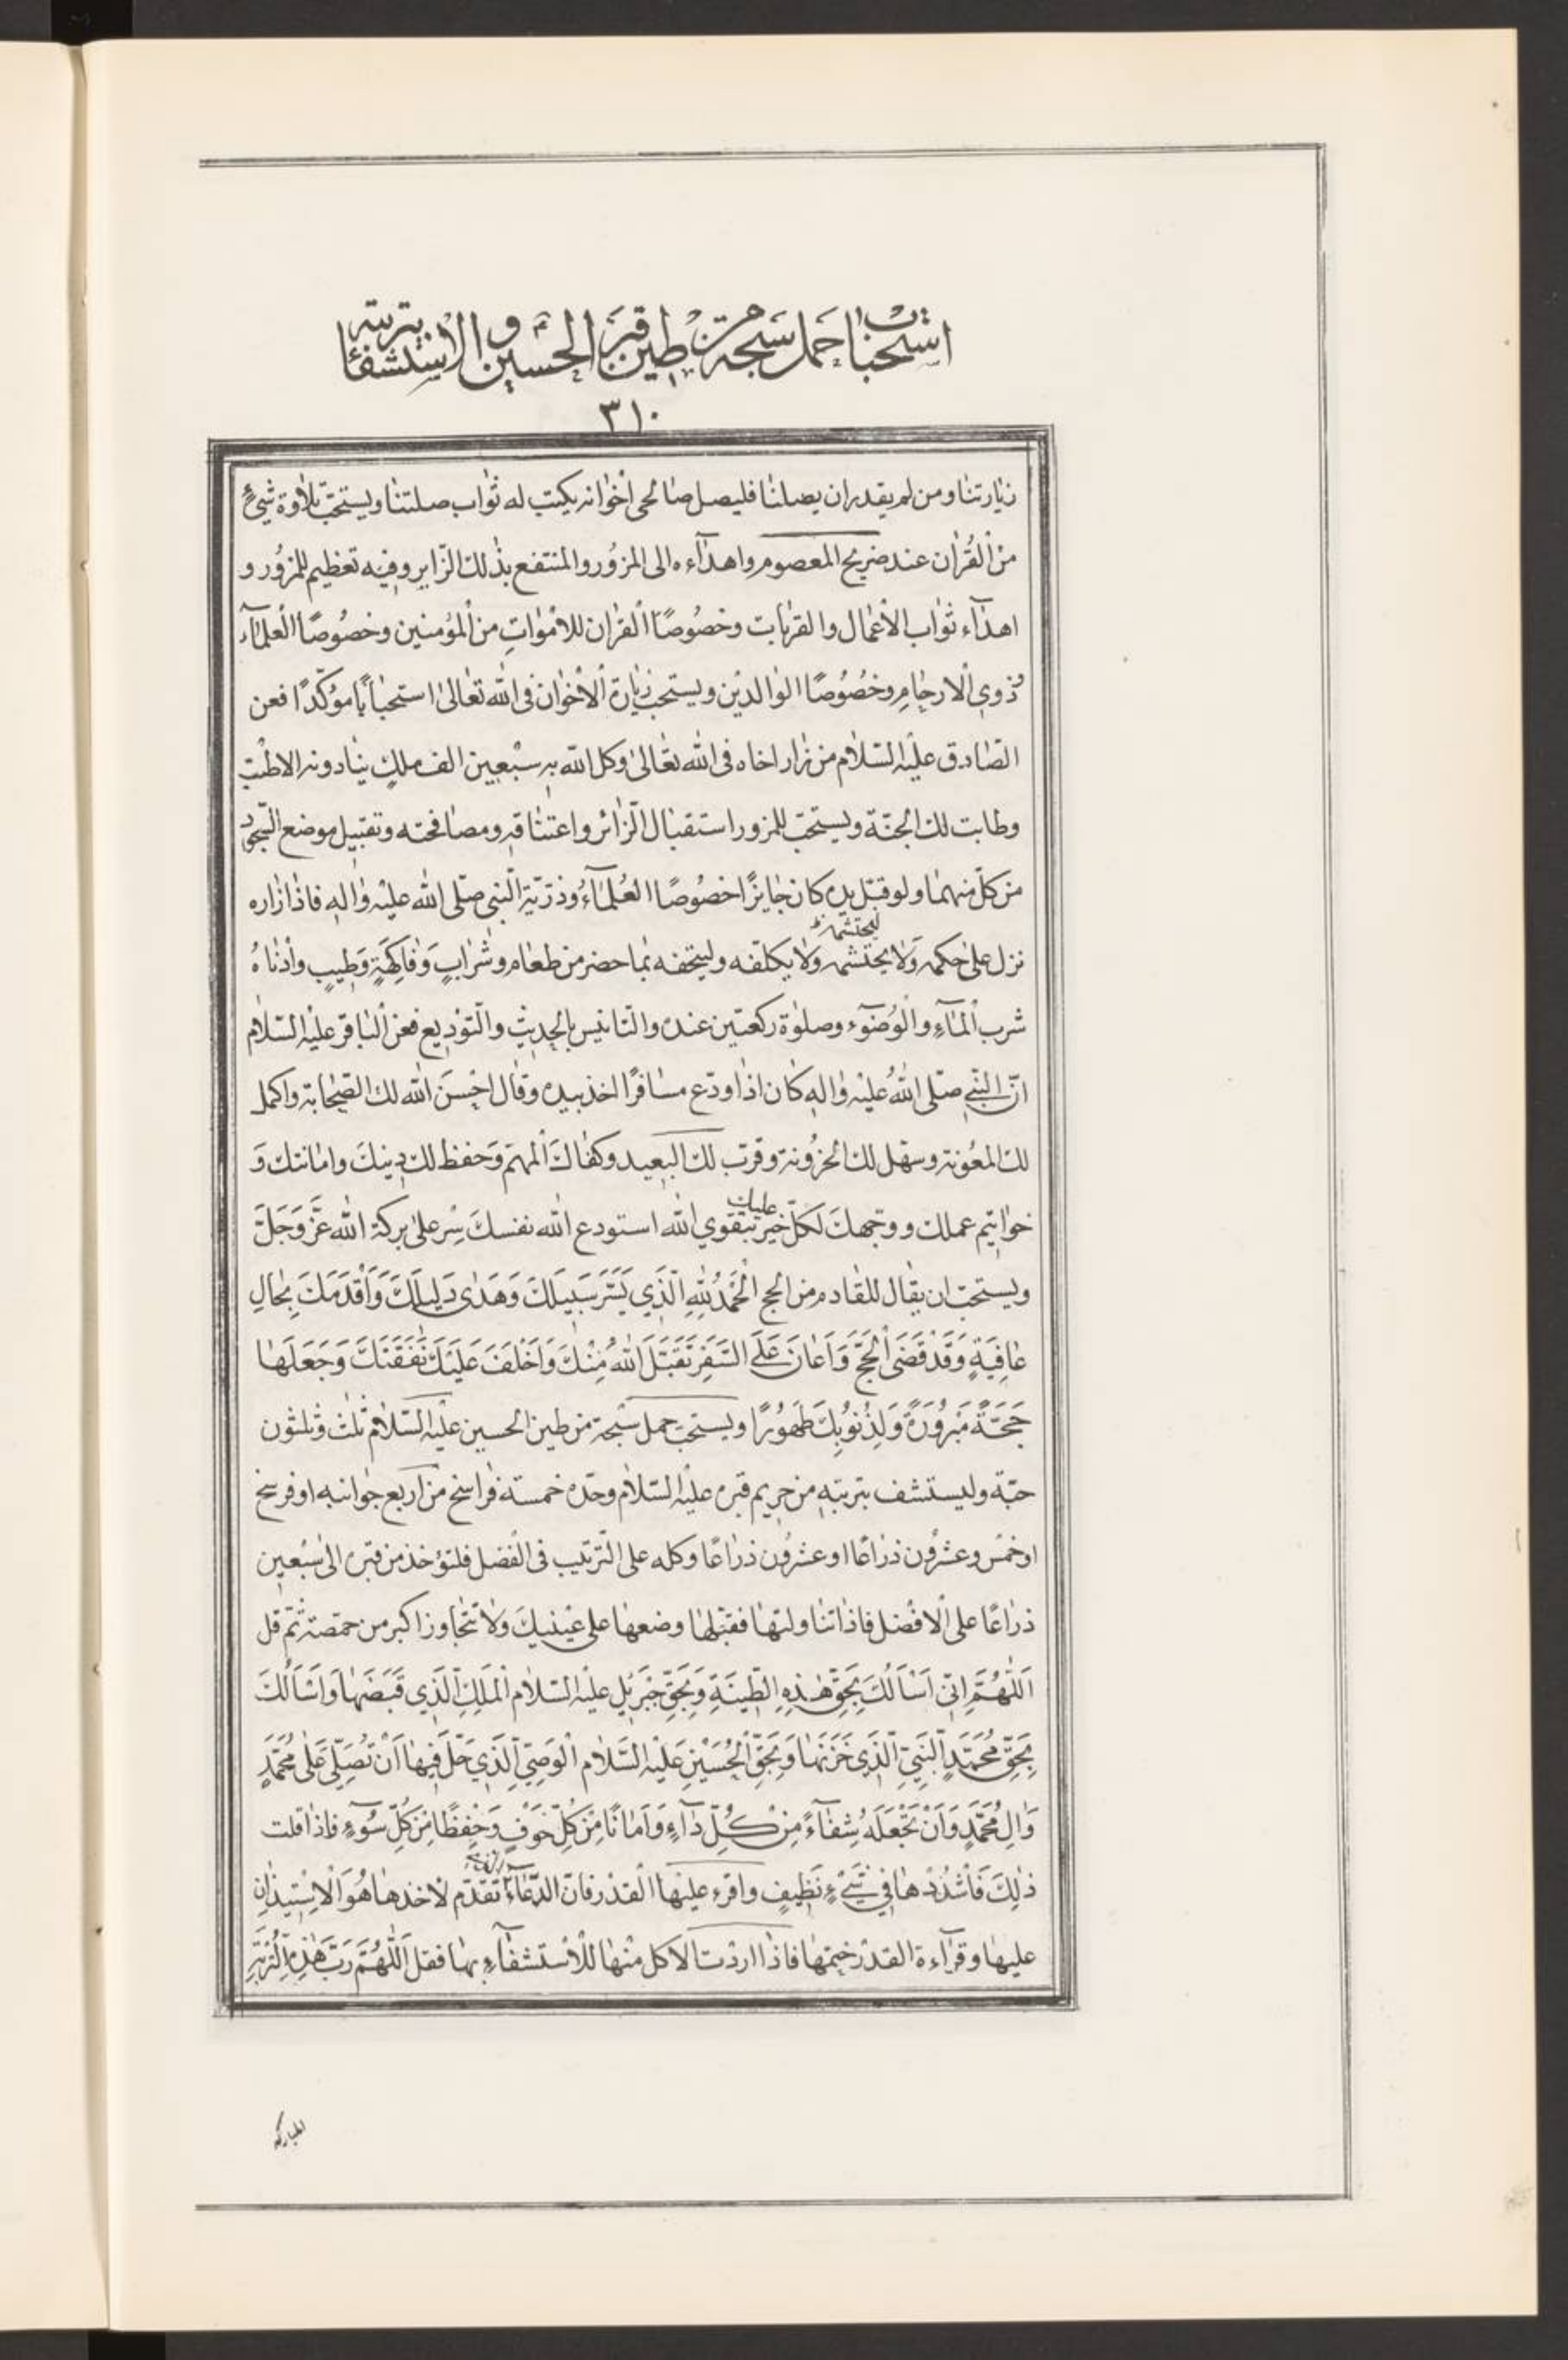 استحباب حمل سبحة من طين قبر الحسين والاستشفاء بتربته
٣١٠
زيارتنا ومن لم يقدر ان يصلنا فليصل صالحي اخوانه يكتب له ثواب صلتنا ويستحبّ تلاوة شيءٍ
من القُرٰان عند ضريح المعصوم واهدآءه الى المزُور والمنتفع بذٰلك الزّاير وفيه تعظيم للمزُور و
اهدٰآء ثوٰاب الأعمٰال والقربٰات وخصُوصًا القرٰان للأموٰاتِ من المؤمنين وخصُوصًا العلمٰآء
وذوي الارحٰامِ وخصُوصًا الوٰالديْن ويستحب زيٰارة الأخوٰان في الله تعٰالى استحبٰابًا مؤكّدًا فعن
الصّادق عليْه السّلام من زٰار اخاه في الله تعٰالى وكل الله بهِ سبْعِين الف ملكٍ ينٰادونه الا طبْت
وطابت لك الجنّة ويستحبّ للمزور استقبٰال الزّائر واعتنٰاقه ومصٰافحته وتقبيل موضع السّجود
من كلّ منهمٰا ولو قبّل يده كان جٰايزًا خصُوصًا العُلمٰآءُ وذرّيّة النّبي صلّى الله عليْه وٰاله فاذٰا زٰاره
نزل على حكمه وَلٰا يحتشمه ولٰا يكلفه وليتحفه بمٰا حضر من طعٰام وشرٰابٍ وَفٰاكِهَةٍ وَطِيبٍ وأدْنٰاهُ
شرب المٰآءِ والوُضوٓء وصلٰوة ركعتين عنده والتّانيس بالحديثِ والتّوْديع فعن البٰاقر عليْه السّلام
انّ النّبيّ صلّى اللهُ عليْه وٰالهِ كٰان اذٰا ودّع مسٰافرًا اخذ بيده وقٰال احْسَنَ الله لك الصّحٰابة واكمل
لك المعُونة وسهّل لك الحزُونة وقرّب لك البَعِيد وكفٰاكَ المُهمّ وَحفظ لك دِينكَ وامٰانتكَ وَ
خوٰاتِيم عملك ووجّهكَ لكلّ خير عليك بتقوي الله استودع الله نفسكَ سِر على بركة الله عَزَّ وَجَلَّ
ويستحبّ ان يقٰال للقٰادم من الحج الْحَمْدُ لِلّٰهِ الَّذِي يَسَّرَ سَبِيلَكَ وَهَدٰى دَلِيلَكَ وَأَقْدَمَكَ بِحٰالِ
عٰافِيَةٍ وَقَدْ قَضَى الْحَجَّ وَاَعٰانَ عَلَى السَّفَرِ تَقَبَّلَ اللهُ مِنْكَ وَاَخْلَفَ عَلَيْكَ نَفَقَتَكَ وَجَعَلَهٰا
حَجَّةً مَبْرُورَةً وَلِذُنُوبِكَ طَهُورًا ويستحبّ حمل سُبْحة من طين الحسين عليْه السّلام ثلٰث وثلٰثون
حبّة وليستشف بتربتهِ من حريم قبره عليْه السّلام وحدّه خمسة فرٰاسخ من اربع جوٰانبه او فرسخ
او خمْس وعشرُون ذرٰاعًا او عشرُون ذرٰاعًا وكله على التّرتيب في الفضل فلتؤخذ من قبره الى سَبْعِين
ذرٰاعًا على الافْضل فاذٰا تنٰاولتهٰا فقبّلهٰا وضعهٰا على عَيْنيكَ ولٰا تتجٰاوز اكبر من حمّصة ثمّ قل
اَللّٰهُمَّ اِنّي اَسْاَلُكَ بِحَقِّ هٰذِهِ الطِّينَةِ وَبِحَقِّ جَبْرَئِيل عليْه السّلام الْمَلَكِ الَّذِي قَبَضَهٰا وَاَسْاَلُكَ
بِحَقِّ مُحَمَّدٍ النَّبِيِّ الَّذِي خَزَنَهٰا وَبِحَقِّ الْحُسَيْنِ عَلَيْه السَّلام الْوَصِيّ الَّذِي حَلَّ فِيهٰا اَنْ تُصَلِّيَ عَلٰى مُحَمَّدٍ
وَاٰلِ مُحَمَّدٍ وَاَنْ تَجْعَلَهُ شِفٰآءً مِنْ كُلِّ دٰآءٍ وَاَمٰانًا مِنْ كُلِّ خَوْفٍ وَحِفظًا مِنْ كُلِّ سُوٓءٍ فاذٰا قلت
ذٰلِكَ فَاشْدُدْهٰا فِي شَيْءٍ نَظِيفٍ واقرء عليْهٰا القدْر فانّ الدّعٰآءَ تقدّم لأخذهٰا هُوَ الْاِسْتِيذٰان
عليهٰا وقرٰآءة القدْر ختمهٰا فاذٰا اردْت الاكل منْهٰا للأستشفٰآءِ بهٰا فقل اَللّٰهُمَّ رَبَّ هٰذِهِ التُّرْبَةِ
المباركه